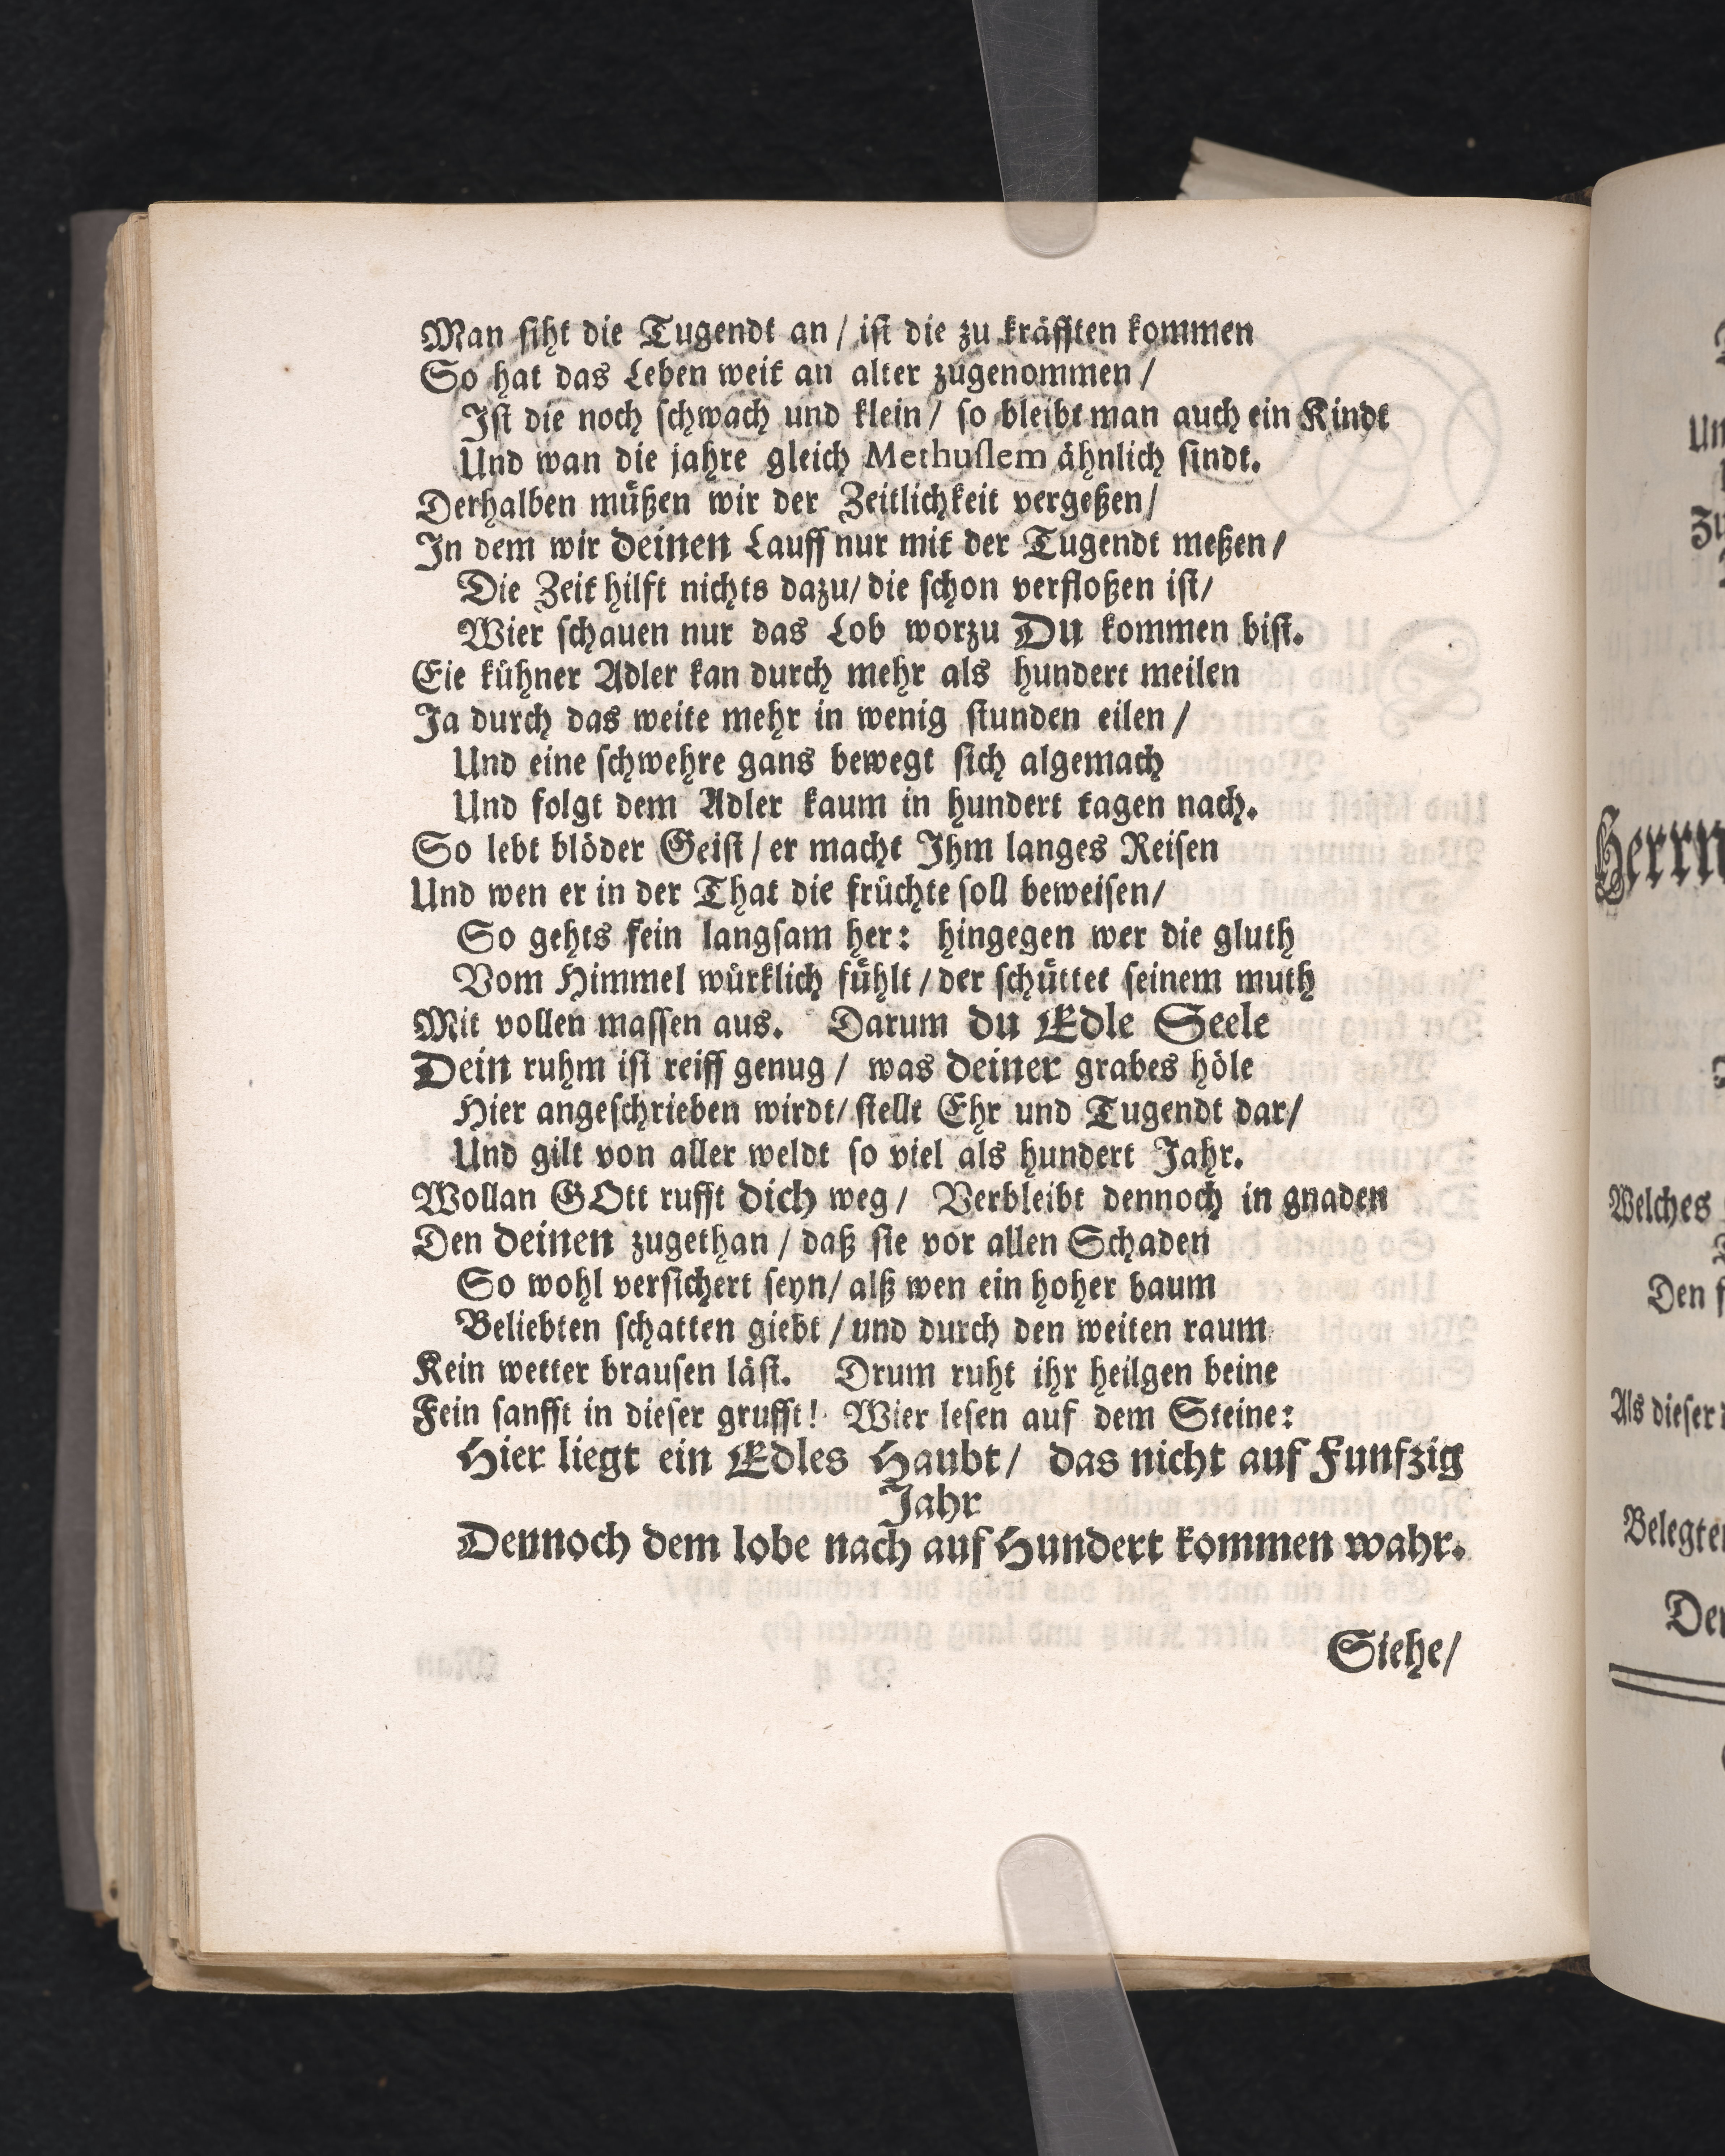 Man siht die Tugendt an / ist die zu kräfften kommen
So hat das Leben weit an alter zugenommen /
Ist die noch schwach und klein / so bleibt man auch ein Kindt
Und wan die jahre gleich Methuslem ähnlich sindt.
Derhalben müßen wir der Zeitlichkeit vergeßen /
In dem wir deinen Lauff nur mit der Tugendt meßen /
Die Zeit hilft nichts dazu / die schon verfloßen ist /
Wier schauen nur das Lob worzu Du kommen bist.
Eie kühner Adler kan durch mehr als hundert meilen
Ja durch das weite mehr in wenig stunden eilen /
Und eine schwehre gans bewegt sich algemach
Und folgt dem Adler kaum in hundert tagen nach.
So lebt blöder Geist / er macht Ihm langes Reisen
Und wen er in der That die früchte soll beweisen /
So gehts fein langsam her: hingegen wer die gluth
Vom Himmel würklich fühlt / der schüttet seinem muth
Mit vollen massen aus. Darum du Edle Seele
Dein ruhm ist reiff genug / was deiner grabes höle
Hier angeschrieben wirdt / stellt Ehr und Tugendt dar /
Und gilt von aller weldt so viel als hundert Jahr.
Wollan GOtt rufft dich weg / Verbleibt dennoch in gnaden
Den deinen zugethan / daß sie vor allen Schaden
So wohl versichert seyn / alß wen ein hoher baum
Beliebten schatten giebt / und durch den weiten raum
Kein wetter brausen läst. Drum ruht ihr heilgen beine
Fein sanfft in dieser grufft! Wier lesen auf dem Steine:
Hier liegt ein Edles Haubt / das nicht auf Funfzig
Jahr
Dennoch dem lobe nach auf Hundert kommen wahr.
Siehe /
Herrn
Welches
Den
Als dieser
Belegte